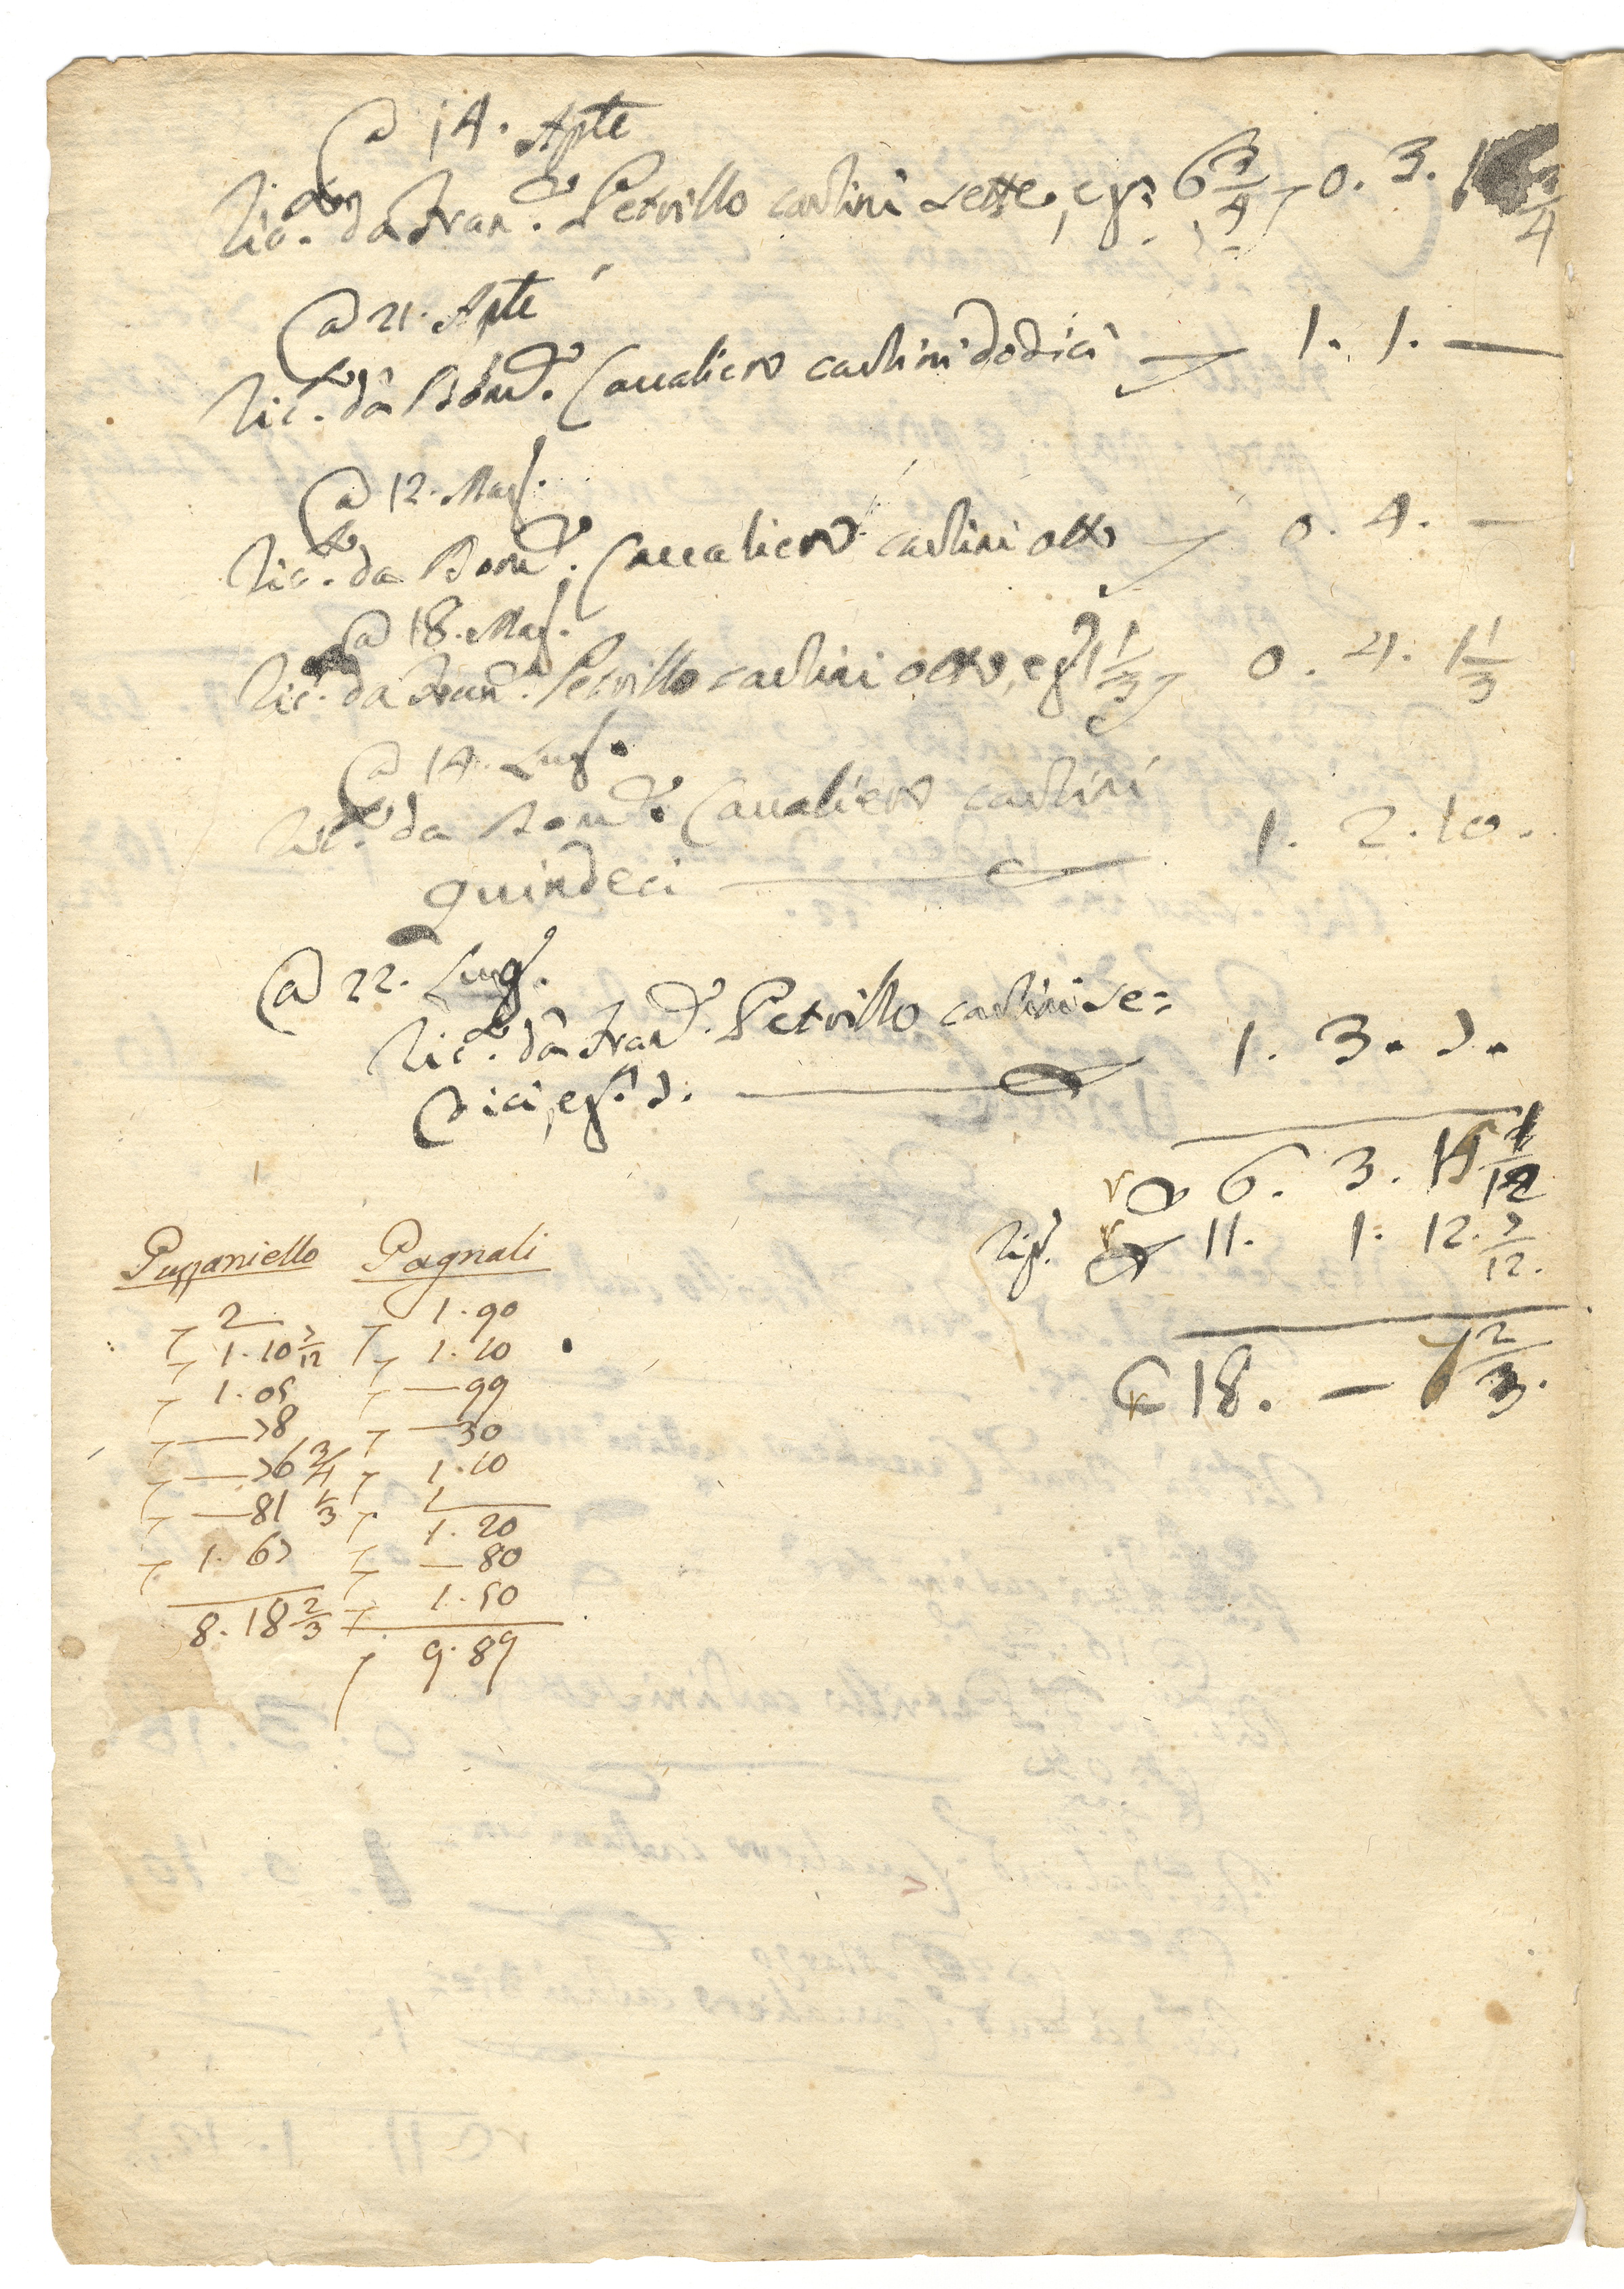 A 14. Aple
Ric.to da Fran.co Petrillo carlini sette, e gr. 6 3/4 0. 3. 3/4
A 21. Aple
Ric.to da Dom.co Cavaliero carlini dodici 1. 1. —
A 12. Mag.
Ric.to da Dom.co Cavaliero carlini otto 0. 4. —
A 18. Mag.
Ric.to da Fran.co Petrillo carlini otto, e gr. 1 1/3 0. 4. 1 1/3
A 14. Lug.
Ric.to da Dom.co Cavaliero carlini
quindeci 1. 2. 10.
A 22. Lug.
Ric.to da Fran.co Petrillo carlini se=
dici, e gr. 7. 1. 3. 7.
6. 3. 15 1/12
Rip. 11. 1. 12. 7/12.
18. — 7 2/3.
Puzzaniello Pagnali
2 1.90
1.10 7/12 1.10
1.05 —99
—78 —30
—76 3/4 1.10
—81 1/3 1
1.67 1.20
8.18 2/3 —80
1.50
9.89